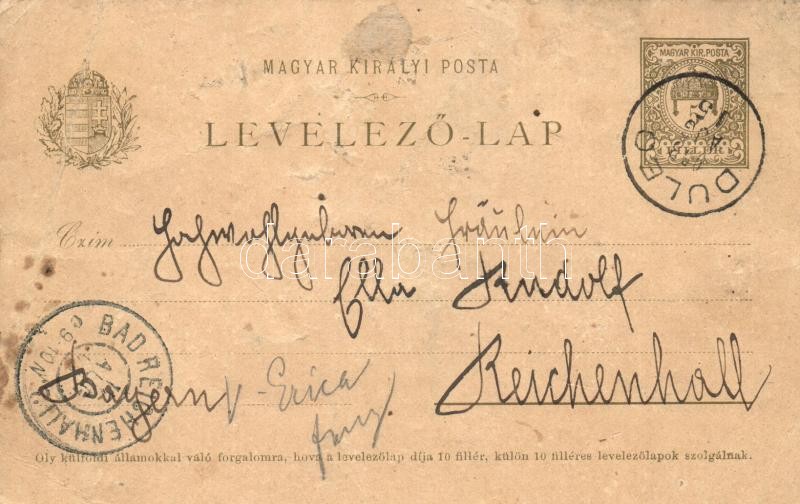 MAGYAR KIRÁLYI POSTA
MAGYAR KIR. POSTA
5
FILLÉR
DULEO
LEVELEZŐ-LAP
Czim
Hochwohlgeboren Fräulein
Ella Rudolf
Reichenhall
Bayern
Erica
BAD REICHENHALL
darabanth
Oly külföldi államokkal való forgalomra, hova a levelezőlap díja 10 fillér, külön 10 filléres levelezőlapok szolgálnak.